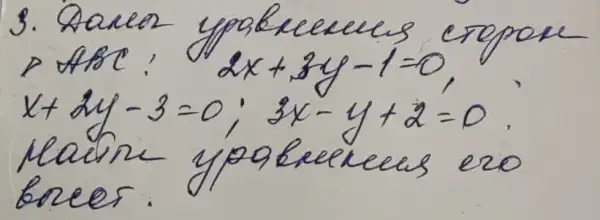 3. Даны уравнения сторон
▷ ABC: 2x+3y-1=0,
x+2y-3=0; 3x-y+2=0.
Найти уравнения его
высот.